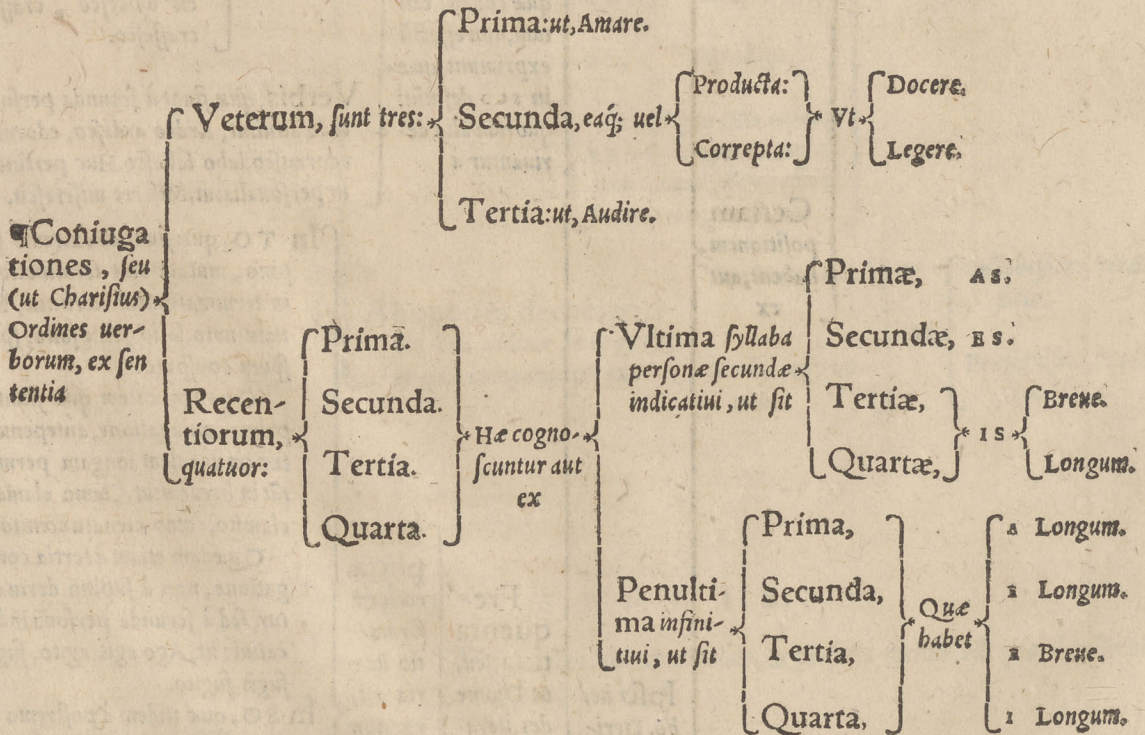 ¶Coniuga
tiones, ſeu
(ut Chariſius)
Ordines uer-
borum, ex ſen
tentia
Veterum, ſunt tres:
Prima: ut, Amare.
Secunda, eaq́; uel
Producta:
Correpta:
Vt
Docere.
Legere.
Tertia: ut, Audire.
Recen-
tiorum,
quatuor:
Prima.
Secunda.
Tertia.
Quarta.
Hæ cogno-
ſcuntur aut
ex
Vltima ſyllaba
perſonæ ſecundæ
indicatiui, ut ſit
Primæ, AS.
Secundæ, ES.
Tertiæ,
Quartæ,
IS
Breue.
Longum.
Penulti-
ma infini-
tiui, ut ſit
Prima,
Secunda,
Tertia,
Quarta,
Quæ
habet
A Longum.
E Longum.
E Breue.
I Longum.